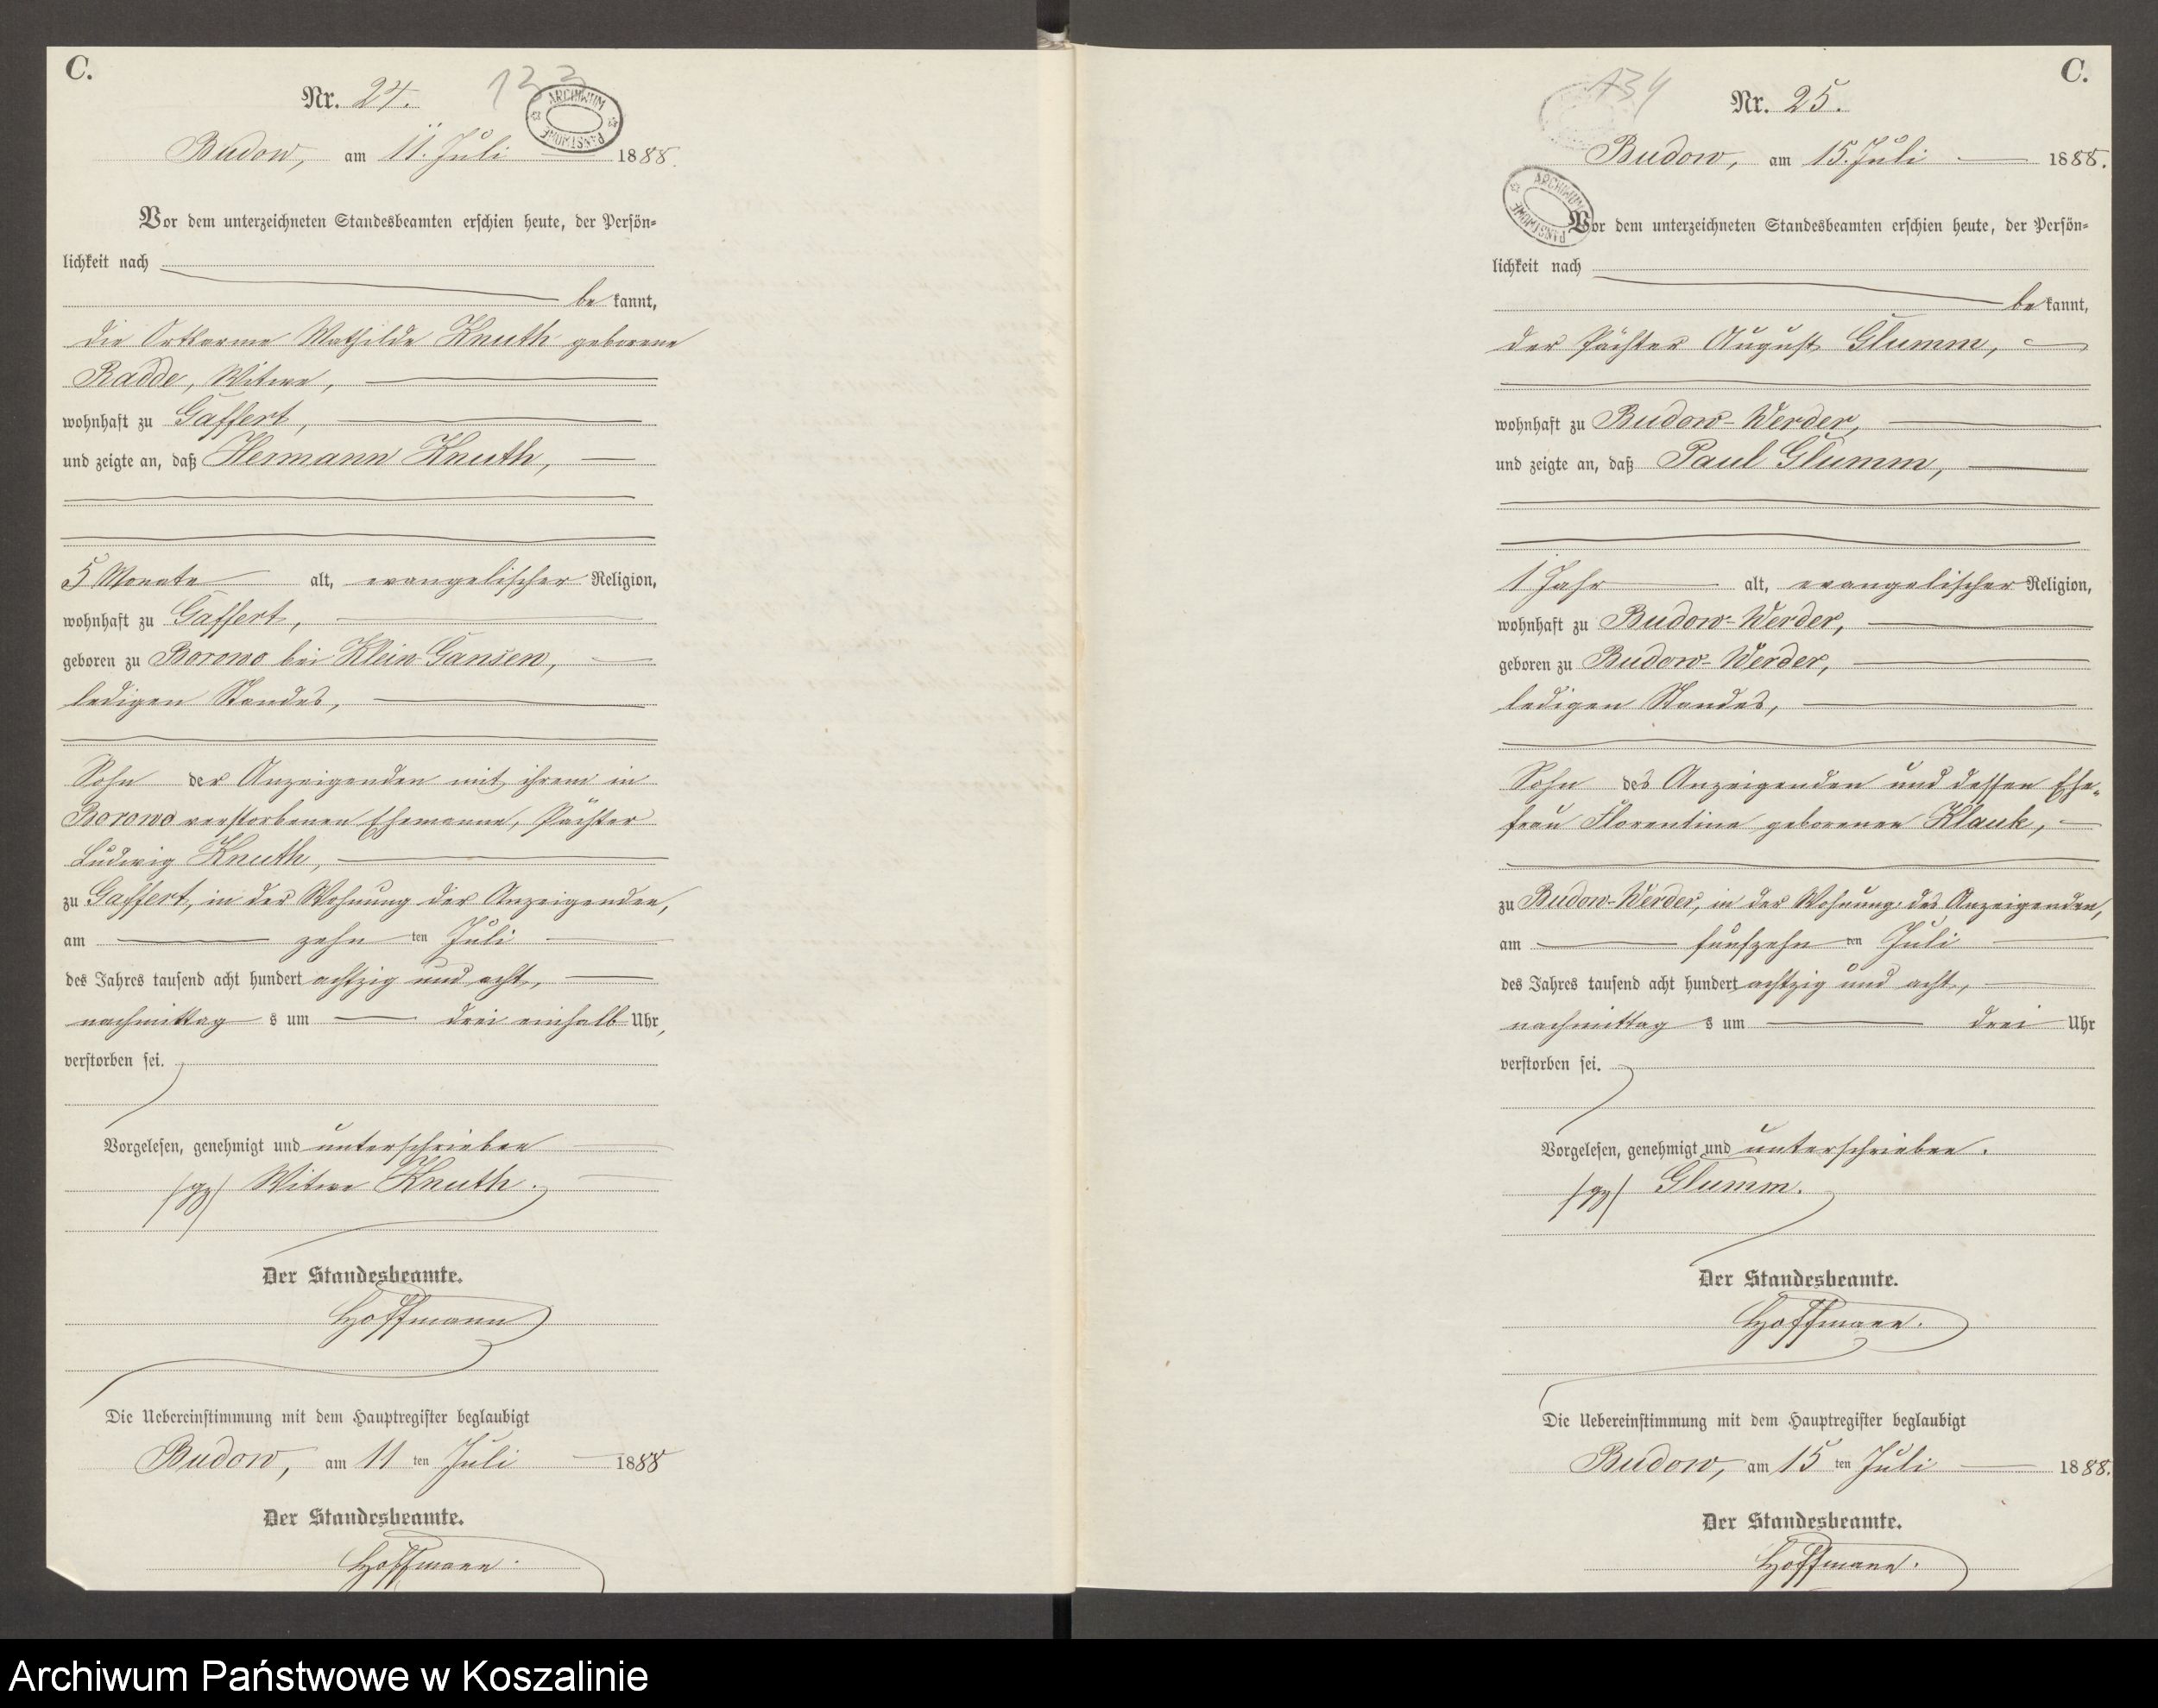 C.
Nr. 24.
133
ARCHIWUM PAŃSTWOWE
Budow, am 11. Juli 1888.
Vor dem unterzeichneten Standesbeamten erschien heute, der Persön-
lichkeit nach
bekannt,
die Ortsarme Mathilde Knuth geborene
Radde, Witwe,
wohnhaft zu Gaffert,
und zeigte an, daß Hermann Knuth,
5 Monate alt, evangelischer Religion,
wohnhaft zu Gaffert,
geboren zu Borowo bei Klein Gansen,
ledigen Standes,
Sohn der Anzeigenden mit ihrem in
Borowo verstorbenen Ehemanne, Pächter
Ludwig Knuth,
zu Gaffert, in der Wohnung der Anzeigenden,
am zehn ten Juli
des Jahres tausend acht hundert achtzig und acht,
nachmittag s um drei einhalb Uhr,
verstorben sei.
Vorgelesen, genehmigt und unterschrieben
(gz) Witwe Knuth.
Der Standesbeamte.
Hoffmann
Die Uebereinstimmung mit dem Hauptregister beglaubigt
Budow, am 11 ten Juli 1888
Der Standesbeamte.
Hoffmann.
C.
134
Nr. 25.
Budow, am 15. Juli 1888.
ARCHIWUM PAŃSTWOWE
Vor dem unterzeichneten Standesbeamten erschien heute, der Persön-
lichkeit nach
bekannt,
der Pächter August Glumm,
wohnhaft zu Budow-Werder,
und zeigte an, daß Paul Glumm,
1 Jahr alt, evangelischer Religion,
wohnhaft zu Budow-Werder,
geboren zu Budow-Werder,
ledigen Standes,
Sohn des Anzeigenden und dessen Ehe-
frau Florentine geborenen Klauk,
zu Budow-Werder, in der Wohnung des Anzeigenden,
am fünfzehn ten Juli
des Jahres tausend acht hundert achtzig und acht,
nachmittag s um drei Uhr
verstorben sei.
Vorgelesen, genehmigt und unterschrieben.
(gz) Glumm.
Der Standesbeamte.
Hoffmann.
Die Uebereinstimmung mit dem Hauptregister beglaubigt
Budow, am 15 ten Juli 1888.
Der Standesbeamte.
Hoffmann.
Archiwum Państwowe w Koszalinie